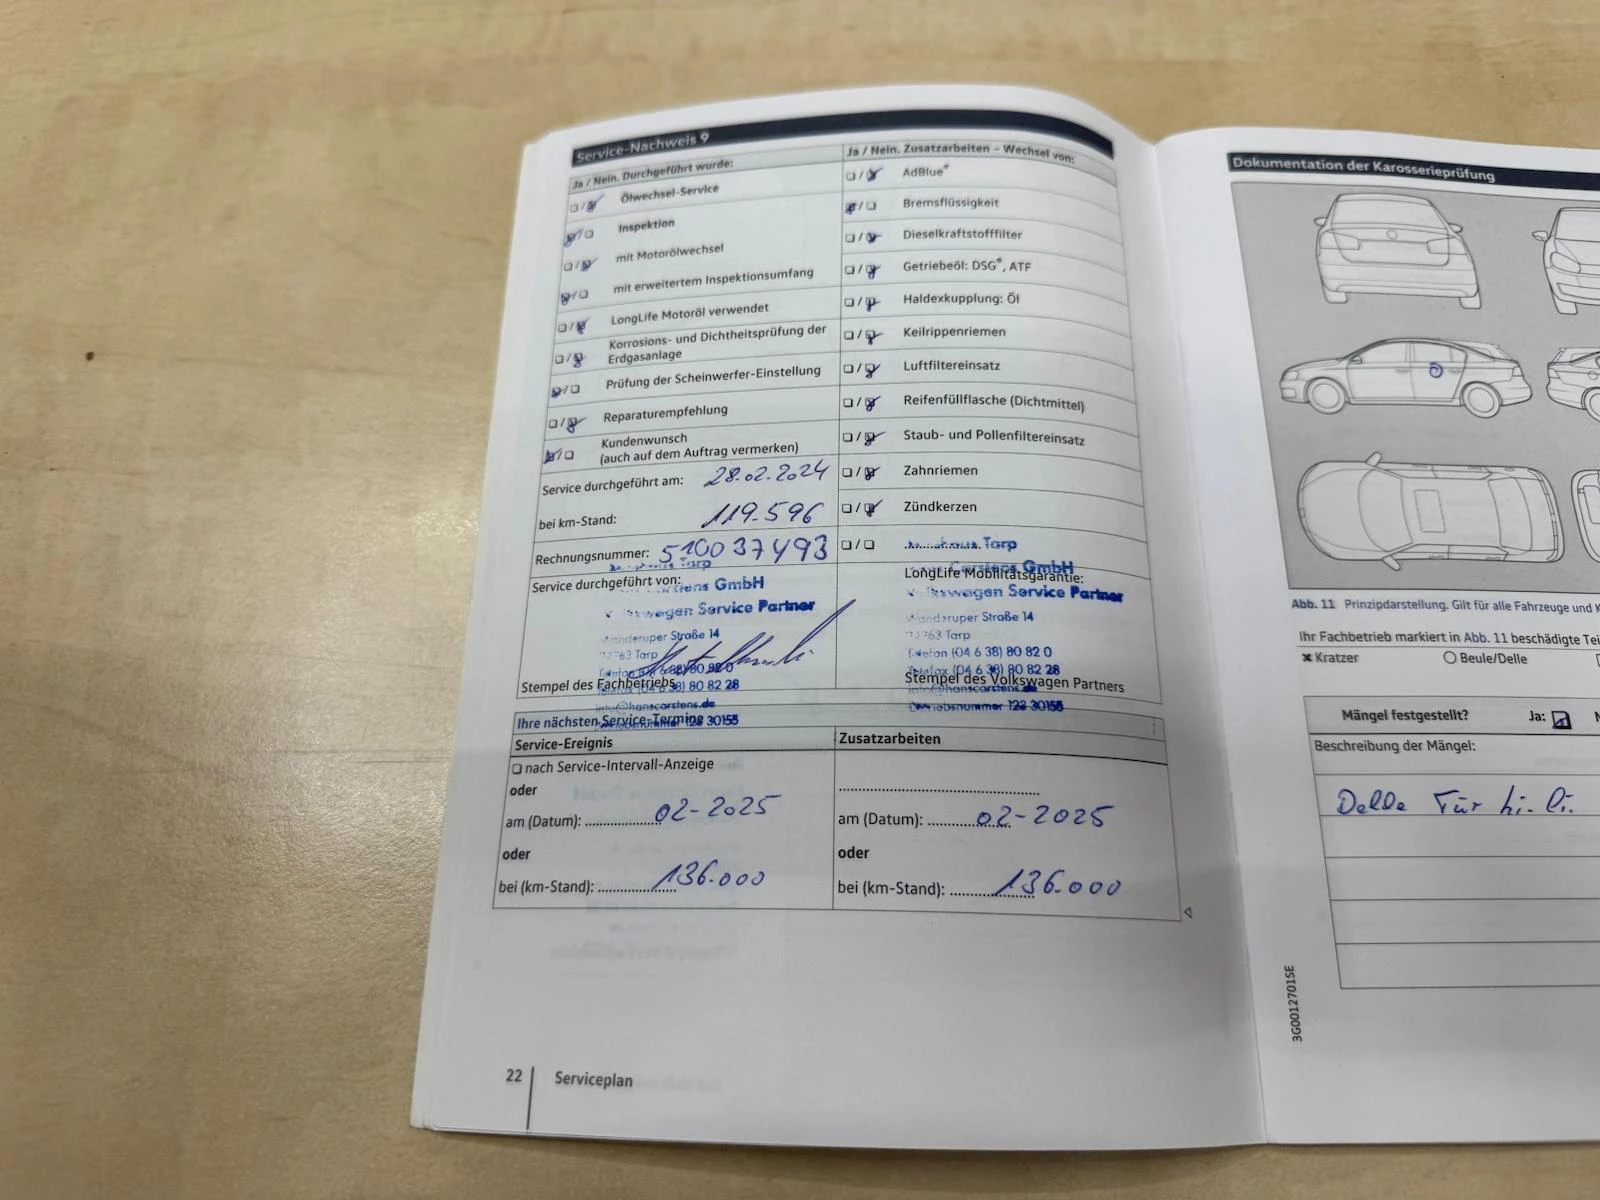 Service-Nachweis 9
Ja / Nein. Durchgeführt wurde:
Ölwechsel-Service
Inspektion
mit Motorölwechsel
mit erweitertem Inspektionsumfang
LongLife Motoröl verwendet
Korrosions- und Dichtheitsprüfung der
Erdgasanlage
Prüfung der Scheinwerfer-Einstellung
Reparaturempfehlung
Kundenwunsch
(auch auf dem Auftrag vermerken)
Service durchgeführt am: 28.02.2024
bei km-Stand: 119.596
Rechnungsnummer: 510037493
Service durchgeführt von:
Tarp
GmbH
Service Partner
Straße 14
Tarp
80 82 0
80 82 28
Stempel des Fachbetriebs
info@hanscarstens.de
123 30155
Ja / Nein. Zusatzarbeiten – Wechsel von:
AdBlue®
Bremsflüssigkeit
Dieselkraftstofffilter
Getriebeöl: DSG®, ATF
Haldexkupplung: Öl
Keilrippenriemen
Luftfiltereinsatz
Reifenfüllflasche (Dichtmittel)
Staub- und Pollenfiltereinsatz
Zahnriemen
Zündkerzen
Tarp
GmbH
LongLife Mobilitätsgarantie:
Service Partner
Straße 14
Tarp
Telefon (04 6 38) 80 82 0
Telefax (04 6 38) 80 82 28
Stempel des Volkswagen Partners
info@hanscarstens.de
123 30155
Ihre nächsten Service-Termine
Service-Ereignis
nach Service-Intervall-Anzeige
oder
am (Datum): 02-2025
oder
bei (km-Stand): 136.000
Zusatzarbeiten
am (Datum): 02-2025
oder
bei (km-Stand): 136.000
22 Serviceplan
Dokumentation der Karosserieprüfung
Abb. 11 Prinzipdarstellung. Gilt für alle Fahrzeuge und
Ihr Fachbetrieb markiert in Abb. 11 beschädigte
Kratzer
Beule/Delle
Mängel festgestellt? Ja:
Beschreibung der Mängel:
Delle Tür hi. li.
3G0012701SE